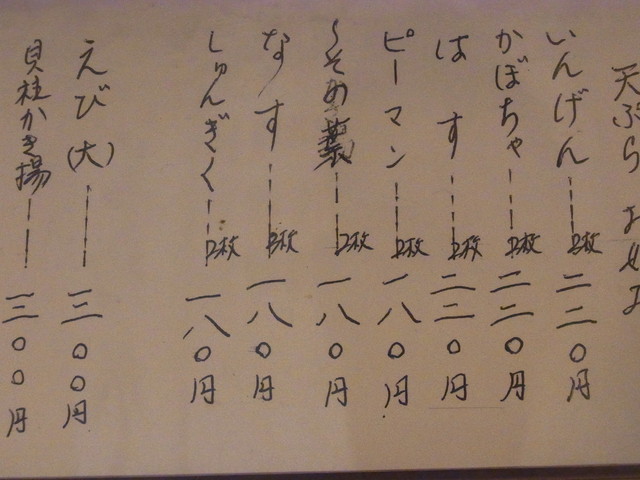 天ぷら
いんげん 2枚 二二〇円
かぼちゃ 2枚 二二〇円
はす 2枚 二二〇円
ピーマン 2枚 一八〇円
しその葉 2枚 一八〇円
なす 3枚 一八〇円
しゅんぎく 2枚 一八〇円
えび(大) 三〇〇円
貝柱かき揚 三〇〇円